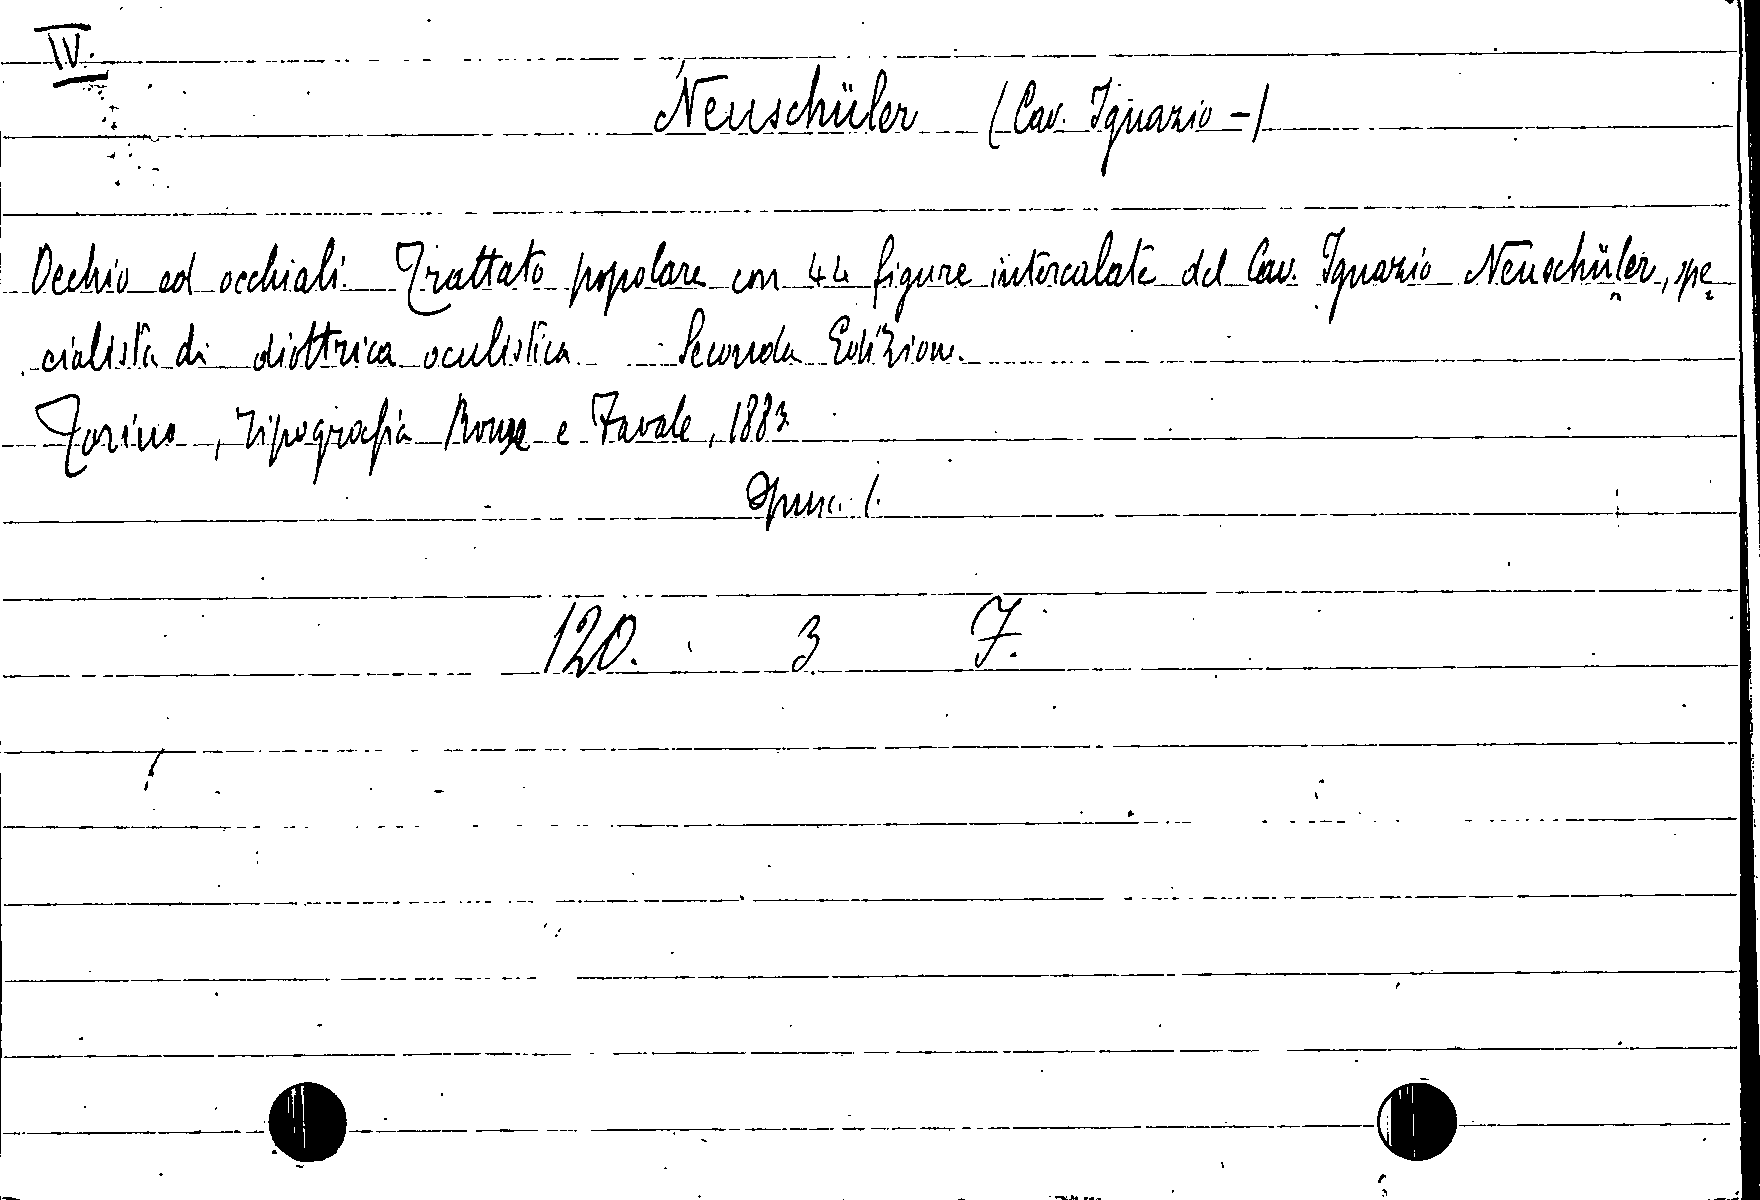 IV.
Neuschüler (Cav. Ignazio -)
Occhio ed occhiali. Trattato popolare con 44 figure intercalate del Cav. Ignazio Neuschüler, spe
cialista di diottrica oculistica. Seconda Edizione.
Torino, Tipografia Roux e Favale, 1883
Opusc. 1.
120. 3 F.